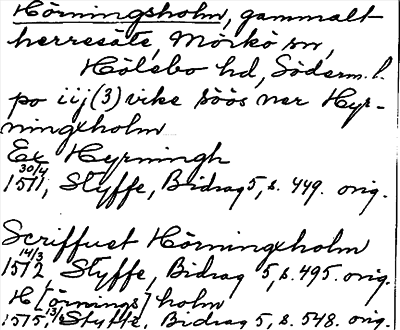 Hörningsholm, gammalt
herresäte, Mörkö sn,
Hölebo hd, Söderm. l.
po iij (3) vike söös ner Hyr-
ningxholm
Ex Hyrningh
30/4
1511, Styffe, Bidrag 5, s. 449. orig.
Scriffuet Hörningxholm
14/3
1512 Styffe, Bidrag 5, s. 495. orig.
H[örnings]holm
1515, Styffe, Bidrag 5, s. 548. orig.